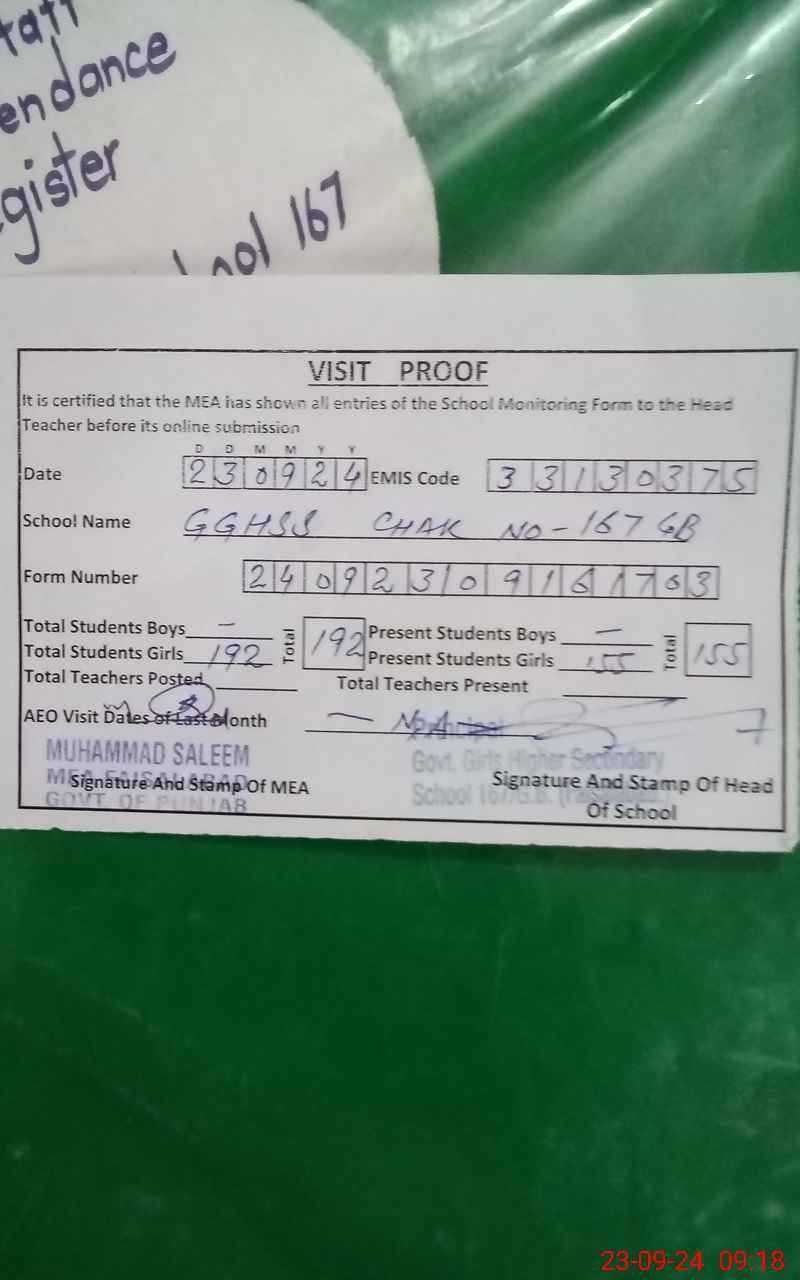 endance
gister
167
VISIT PROOF
It is certified that the MEA has shown all entries of the School Monitoring Form to the Head
Teacher before its online submission
D D M M Y Y
Date 230924 EMIS Code 33130375
School Name GGHSS CHAK NO-167 GB
Form Number 24092309161763
Total Students Boys — Total 192 Present Students Boys — Total 155
Total Students Girls 192 Present Students Girls 155
Total Teachers Posted Total Teachers Present
AEO Visit Dates of Last Month —
MUHAMMAD SALEEM
MEA FAISALABAD
GOVT OF PUNJAB
Signature And Stamp Of MEA
Principal
Govt. Girls Higher Secondary
School 167/G.B.
Signature And Stamp Of Head
Of School
23-09-24 09:18